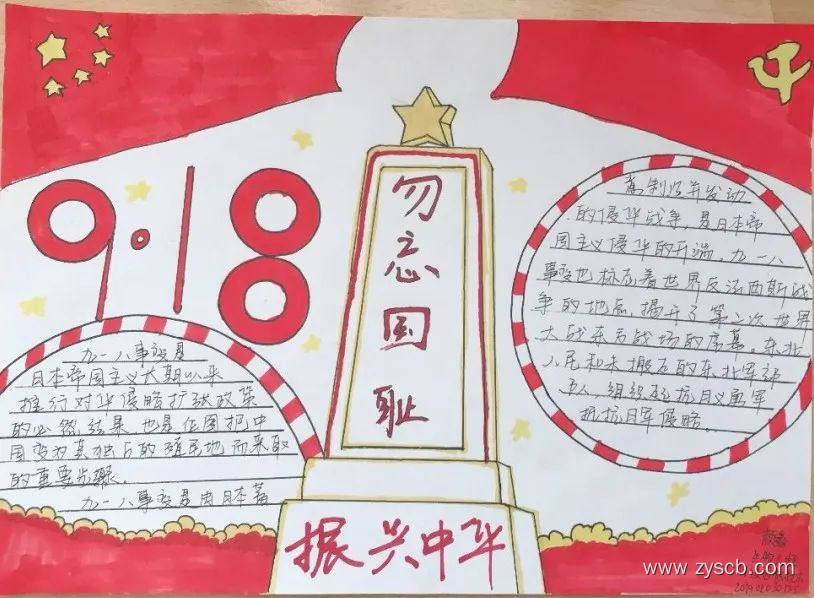 9·18
勿忘国耻
振兴中华
九一八事变是
日本帝国主义长期以来
推行对华侵略扩张政策
的必然结果,也是企图把中
国变为其独占的殖民地而采取
的重要步骤。
九一八事变是由日本蓄
意制造并发动
的侵华战争,是日本帝
国主义侵华的开端。九一八
事变也标志着世界反法西斯战
争的起点,揭开了第二次世界
大战东方战场的序幕。东北
人民和未撤走的东北军部
五人,组织起抗日义勇军
抵抗日军侵略。
www.zyscb.com